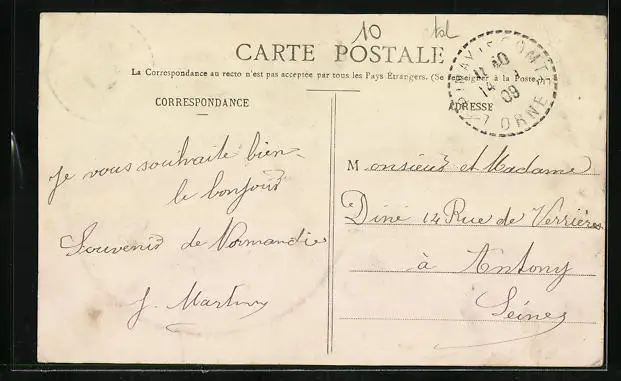 10
CARTE POSTALE
La Correspondance au recto n'est pas acceptée par tous les Pays Etrangers. (Se renseigner à la Poste.)
CORRESPONDANCE
ADRESSE
14
09
ORNE
Je vous souhaite bien
le bonjour
Souvenir de Normandie
J. Martin
Monsieur et Madame
Diné 14 Rue de Verrières
à Antony
Seine